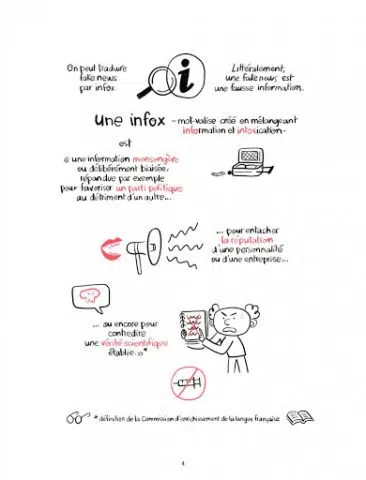 On peut traduire
fake news
par infox.
Littéralement,
une fake news est
une fausse information.
Une infox -mot-valise créé en mélangeant
information et intoxication-
est
« une information mensongère
ou délibérément biaisée,
répandue par exemple
pour favoriser un parti politique
au détriment d'un autre...
... pour entacher
la réputation
d'une personnalité
ou d'une entreprise...
... ou encore pour
contredire
une vérité scientifique
établie. »*
* définition de la Commission d'enrichissement de la langue française
4